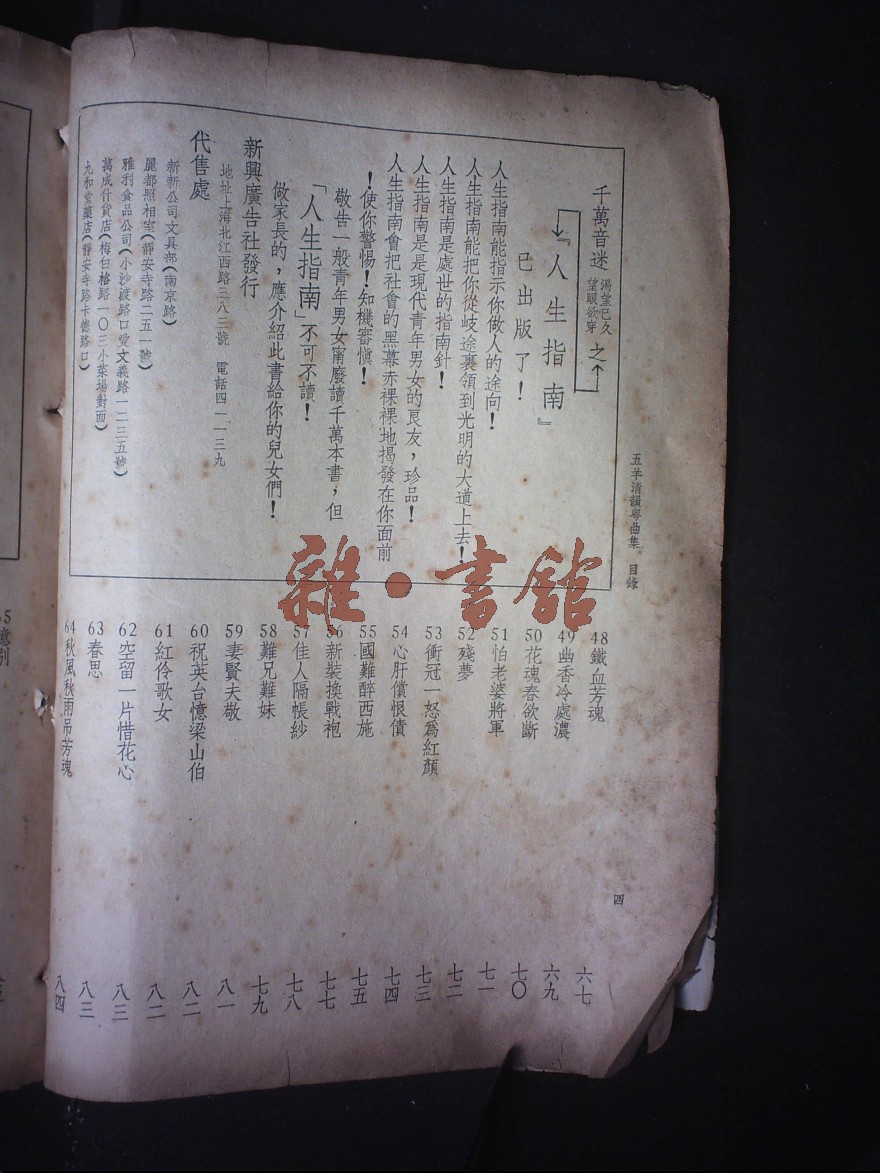 五羊清韻粵曲集　目錄
四
千萬音迷
渴望已久
望眼欲穿
之
『人生指南』
已出版了！
人生指南能指示你做人的途向！
人生指南能把你從岐途裏領到光明的大道上去！
人生指南是處世的指南針！
人生指南是是現代青年男女的良友，珍品！
人生指南會把社會的黑幕赤裸裸地揭發在你面前
！使你警惕！知機審愼！
敬告一般青年男女甯廢讀千萬本書，但
「人生指南」不可不讀！
做家長的，應介紹此書給你的兒女們！
新興廣告社發行
地址上海北江西路三八三號　電話四一一三九
代售處
新新公司文具部（南京路）
麗都照相室（靜安寺路二五一號）
雅利食品公司（小沙渡路口愛文義路一二三五號）
萬成什貨店（梅白格路一〇三小菜場對面）
九和堂藥店（靜安寺路卡德路口）
48 鐵血芳魂　六七
49 幽香冷處濃　六九
50 花魂春欲斷　七〇
51 怕老婆將軍　七一
52 殘夢　七二
53 衝冠一怒爲紅顏　七三
54 心肝償恨債　七四
55 國難醉西施　七五
56 新裝換戰袍　七七
57 佳人隔帳紗　七八
58 難兄難妹　七九
59 妻賢夫敬　八一
60 祝英台憶梁山伯　八二
61 紅伶歌女　八二
62 空留一片惜花心　八三
63 春思　八三
64 秋風秋雨吊芳魂　八四
雜・書館